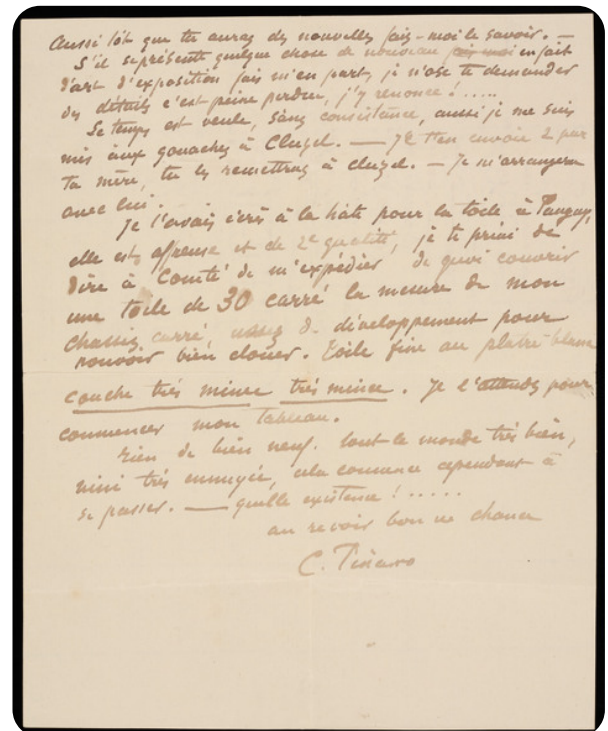 Aussi tôt que tu auras des nouvelles fais-moi le savoir. —
S'il se présente quelque chose de nouveau fais moi en fait
d'art d'exposition fais m'en part, je n'ose te demander
des détails c'est peine perdue, j'y renonce !.....
Le temps est veule, sans consistance, aussi je me suis
mis aux gouaches à Cluzel. — Je t'en envoie 2 par
ta mère, tu les remettras à Cluzel. — Je m'arrangerai
avec lui.
Je t'avais écris à la hâte pour la toile à Tanguy,
elle est affreuse et de 2e qualité, je te priai de
dire à Comté de m'expédier de quoi couvrir
une toile de 30 carré la mesure de mon
chassis carré, de développement pour
pouvoir bien clouer. toile fine au platre blanc
couche très mince très mince. Je l'attends pour
commencer mon tableau.
Rien de bien neuf. tout le monde très bien,
nini très ennuyée, cela commence cependant à
se passer. — quelle existence !.....
au revoir bonne chance
C. Pissarro